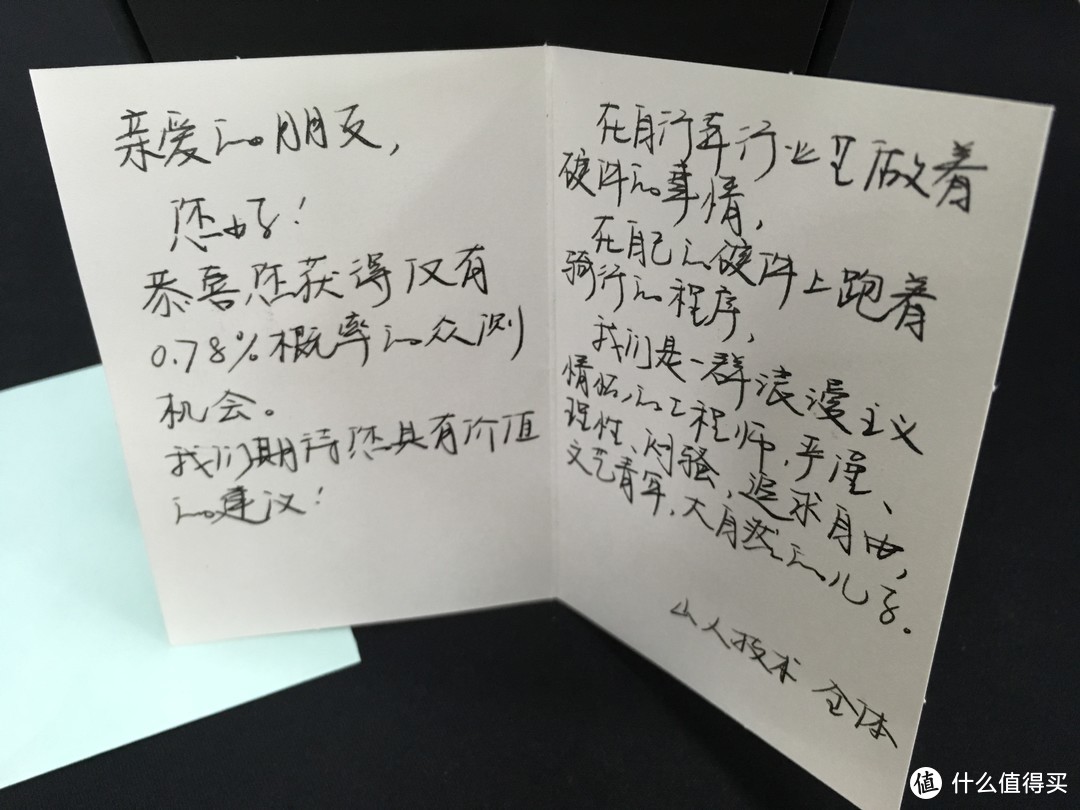 亲爱的朋友，
您好！
恭喜您获得仅有
0.78%概率的众测
机会。
我们期待您具有价值
的建议！
在自行车行业里做着
硬件的事情，
在自己的硬件上跑着
骑行的程序，
我们是一群浪漫主义
情怀的工程师，严谨、
理性、闷骚，追求自由，
文艺青年，大自然的儿子。
山人技术 全体
值 什么值得买